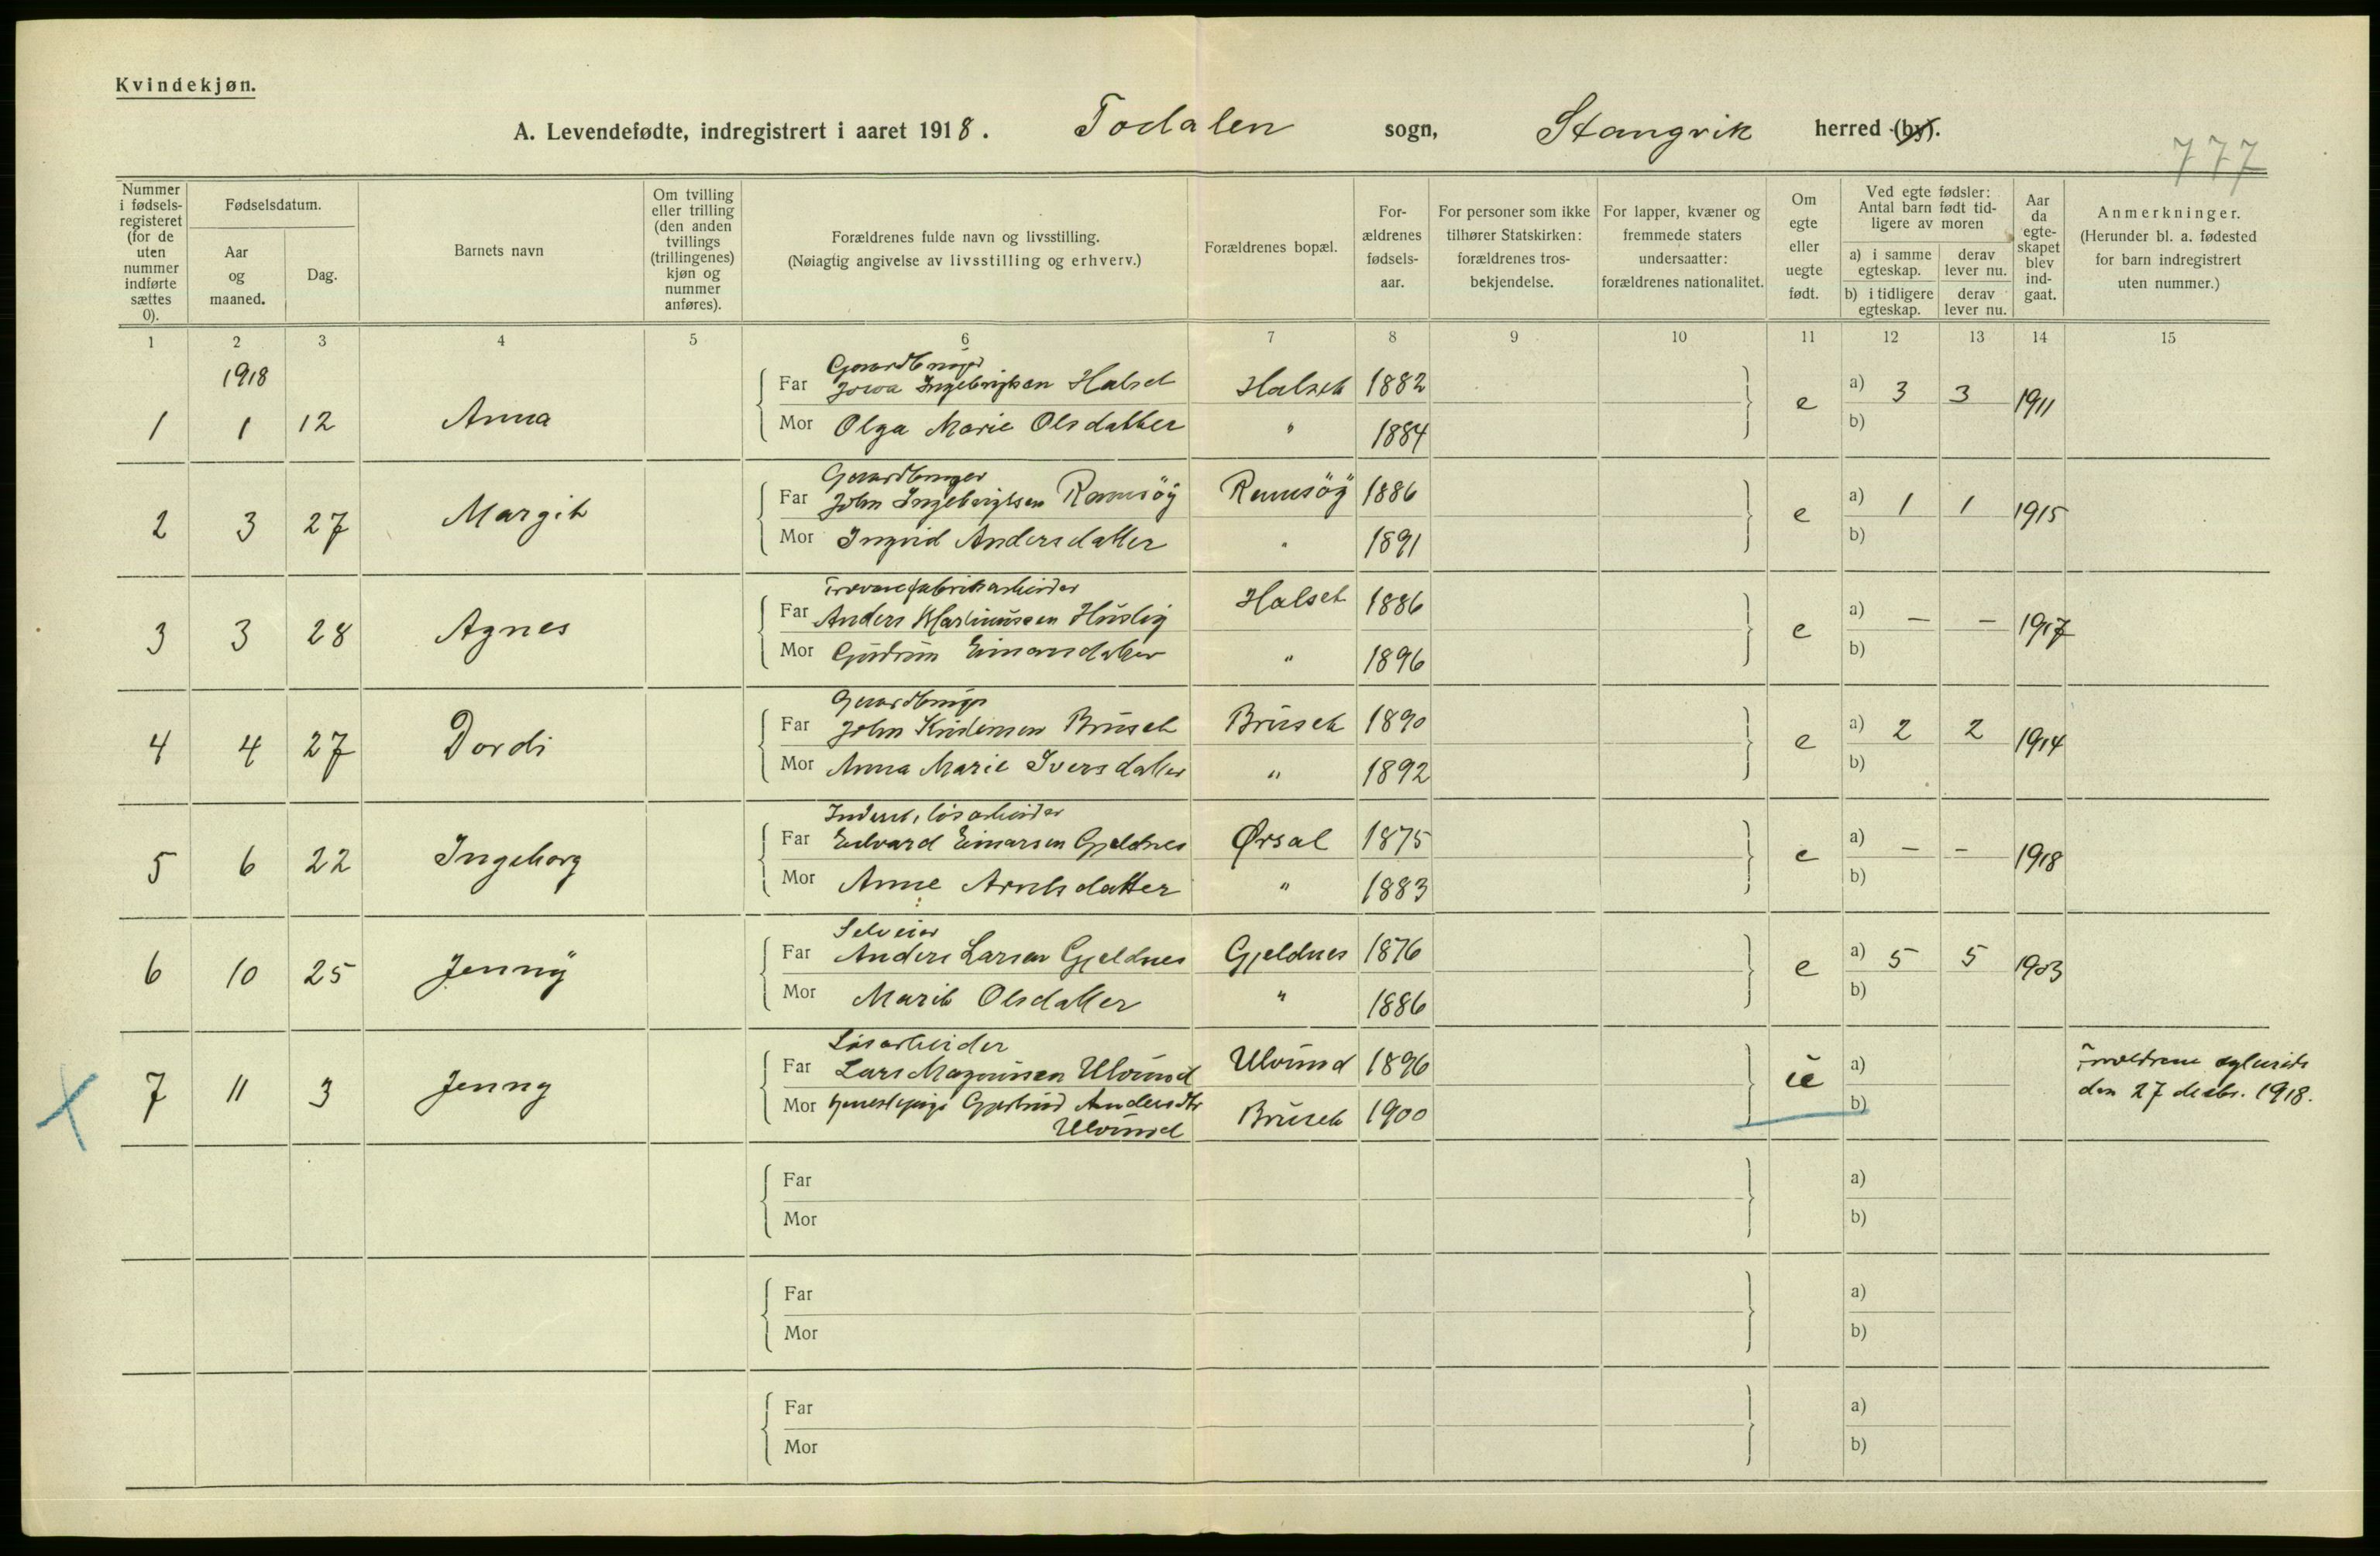 Kvindekjøn.
A. Levendefødte, indregistrert i aaret 1918. Todalen sogn, Stangvik herred (by).
777
Nummer i fødsels-registeret (for de uten nummer indførte sættes 0).
Fødselsdatum.
Aar og maaned.
Dag.
Barnets navn
Om tvilling eller trilling (den anden tvillings (trillingenes) kjøn og nummer anføres).
Forældrenes fulde navn og livsstilling.
(Nøiagtig angivelse av livsstilling og erhverv.)
Forældrenes bopæl.
For-ældrenes fødsels-aar.
For personer som ikke tilhører Statskirken: forældrenes tros-bekjendelse.
For lapper, kvæner og fremmede staters undersaatter: forældrenes nationalitet.
Om egte eller uegte født.
Ved egte fødsler: Antal barn født tid-ligere av moren
a) i samme egteskap. derav lever nu.
b) i tidligere egteskap. derav lever nu.
Aar da egte-skapet blev ind-gaat.
Anmerkninger.
(Herunder bl. a. fødested for barn indregistrert uten nummer.)
1 2 3 4 5 6 7 8 9 10 11 12 13 14 15
1918
Gaardbruger
Far Ingebrigtsen Halset Halset 1882
1 1 12 Anna e a) 3 3 1911
Mor Olga Marie Olsdatter " 1884 b)
Gaardbruger
Far John Ingebrigtsen Ramsöÿ Ramsöÿ 1886
2 3 27 Margit e a) 1 1 1915
Mor Ingrid Andersdatter " 1891 b)
Trævarefabrikarbeider
Far Anders Martinussen Halset 1886
3 3 28 Agnes e a) – – 1917
Mor Gudrun Einarsdatter " 1896 b)
Gaardbruger
Far John Kristensen Brüset Brüset 1890
4 4 27 Dordi e a) 2 2 1914
Mor Anna Marie Iversdatter " 1892 b)
Inderst, løsarbeider
Far Edvard Einarsen Gjeldnes Ørsal 1875
5 6 22 Ingeborg e a) – – 1918
Mor Anne Arntsdatter " 1883 b)
Selveier
Far Anders Larsen Gjeldnes Gjeldnes 1876
6 10 25 Jennÿ e a) 5 5 1903
Mor Marit Olsdatter " 1886 b)
Løsarbeider
Far Lars Magnussen Ulvünd Ulvünd 1896 a) Forældrene egteviet
7 11 3 Jenny ue den 27 decbr. 1918.
Mor Gjertrud Andersdtr Brüset 1900 b)
Ulvünd
Far a)
Mor b)
Far a)
Mor b)
Far a)
Mor b)